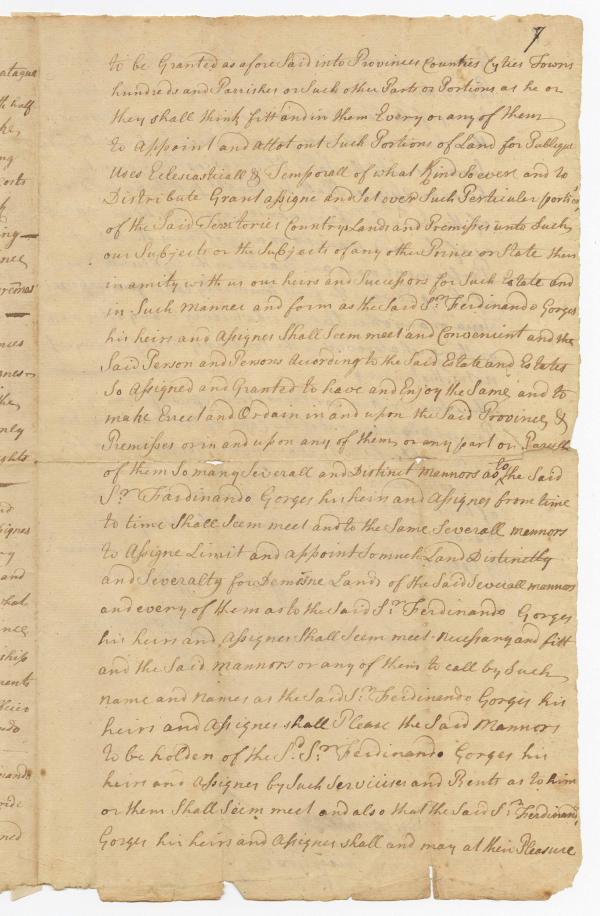 7
to be Granted as afore Said into Provinces Counties Cyties Towns
hundreds and Parrishes or Such other Parts or Portions as he or
they shall think fitt and in them Every or any of them
to Appoint and Allot out Such Portions of Land for Publique
Uses Eclesiasticall & Temporall of what Kind Soever and to
Distribute Grant assigne and Set over Such Perticuler portions
of the Said Territories Countrys Lands and Premisses unto Such
our Subjects or the Subjects of any other Prince or State then
in amity with us our heirs and Successors for Such Estate and
in Such manner and form as the Said Sr. Ferdinando Gorges
his heirs and Assignes Shall Seem meet and Convenient and the
Said Person and Persons According to the Said Estate and Estates
So Assigned and Granted to have and Enjoy the Same and to
make Erect and Ordain in and upon the Said Province &
Premisses or in and upon any of them or any part or Parcell
of them So many Severall and Distinct mannors as to the Said
Sr. Ferdinando Gorges his heirs and Assignes from time
to time Shall Seem meet and to the Same Severall mannors
to Assigne Limit and appoint So much Land Distinctly
and Severalty for Demosne Lands of the Said Severall mannors
and every of them as to the Said Sr. Ferdinando Gorges
his heirs and Assignes Shall Seem meet Necessary and fitt
and the Said mannors or any of them to call by Such
name and names as the Said Sr. Ferdinando Gorges his
heirs and Assignes shall Please the Said Mannors
to be holden of the Sd. Sr. Ferdinando Gorges his
heirs and Assignes by Such Services and Rents as to him
or them Shall Seem meet and also that the Said Sr. Ferdinando
Gorges his heirs and Assignes shall and may at their Pleasure